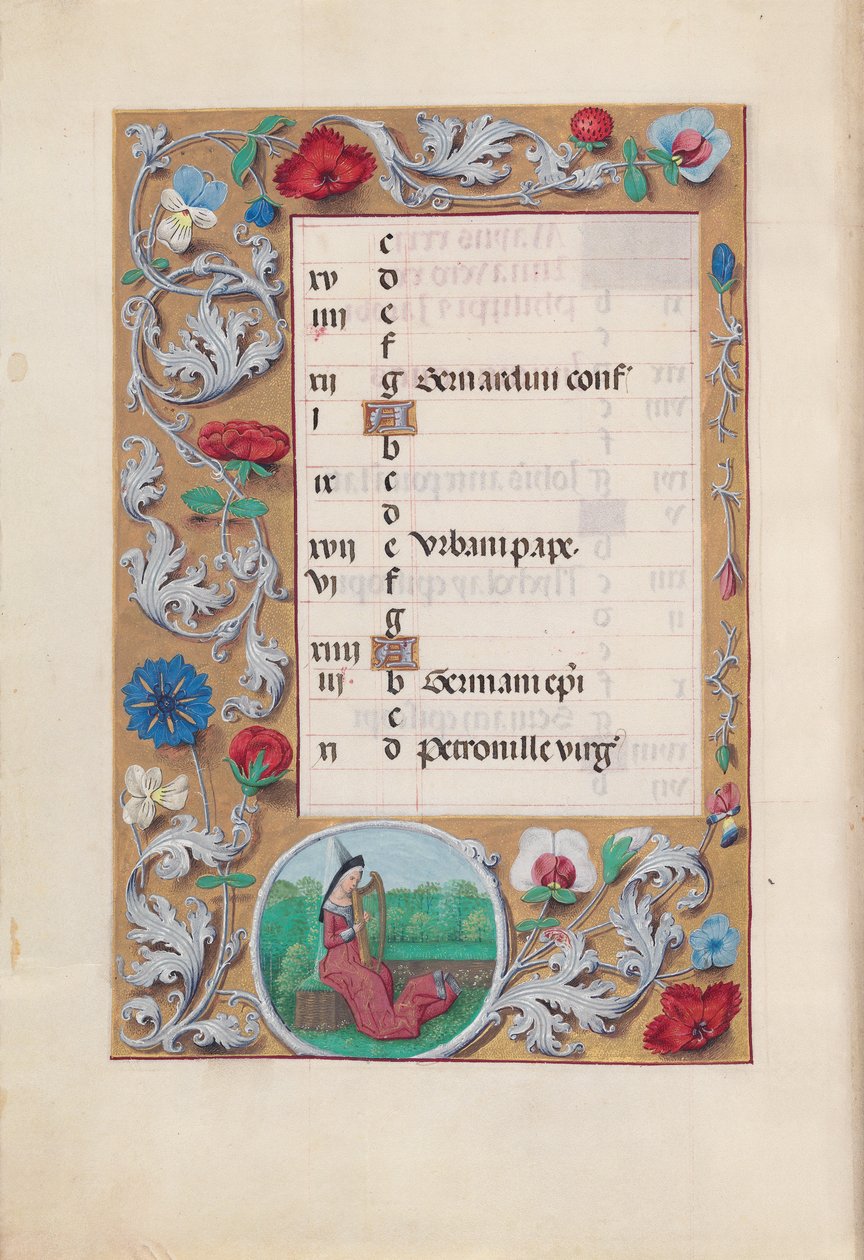 c
xv d
iiij e
f
xij g Bernardini conf'
j A
b
ix c
d
xvij e Urbani pape.
vj f
g
xiiij A
iij b Germani epi
c
xj d Petronille virg'